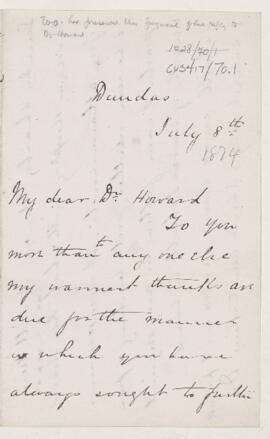 has preserved this fragment of his reply to
Dr Howard
1228/70/1
CUS417/70.1
Dundas
July 8th
1874
My dear Dr Howard
To you
more than to any one else
my warmest thanks are
due for the manner
in which you have
always sought to further